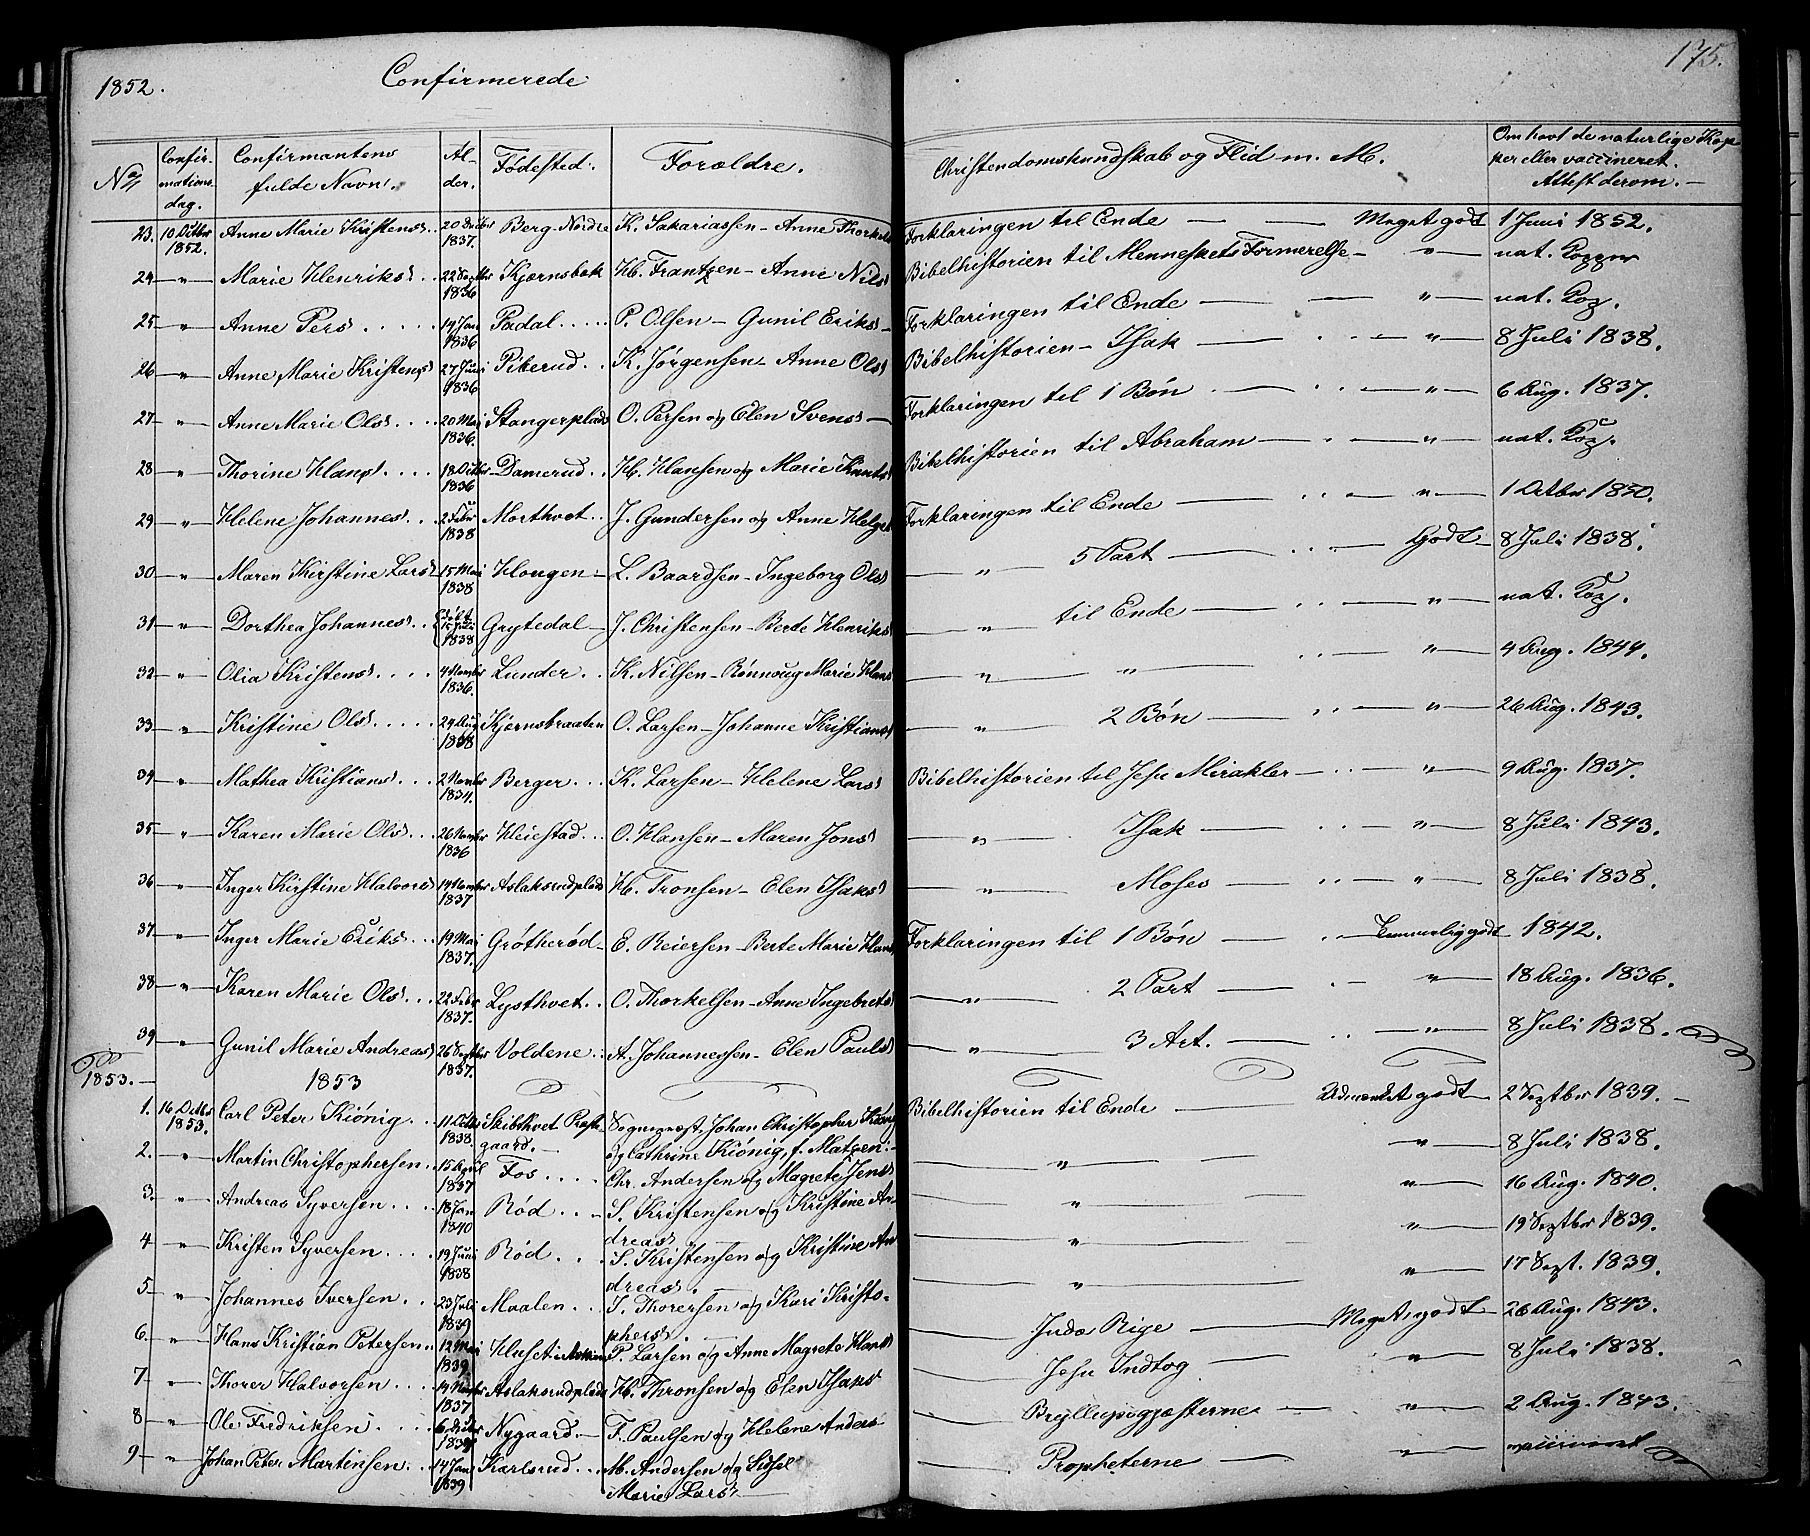 1852.
Confirmerede
175.
No Confir-mations-dag. Confirmantens fulde Navn. Al-der. Fødested. Forældre. Christendomskundskab og Flid m. M. Om havt de naturlige Kop-per eller vaccineret. Attest derom.
23. 10 Octbr 1852. Anne Marie Kristensd. 20 1837. Berg-Nordre K. Sakariassen - Anne Thorkelsd Forklaringen til Ende Meget godt 1 Juni 1852.
24 " Marie Henriksd. 22 Septbr 1836 Kjærnsbak H. Frantzen - Anne Nilsd Bibelhistorien til Menneskets Formerelse " nat. Kopper
25 " Anne Persd. 14 Jan 1836 Padal P. Olsen - Gunil Eriksd Forklaringen til Ende " nat. Kop.
26 " Anne Marie Kristensd 27 Juni 1836 Pikerud K. Jørgensen - Anne Olsd Bibelhistorien - Isak " 8 Juli 1838.
27 " Anne Marie Olsd. 20 Mai 1836. Stangerplads O. Persen og Elen Svensd Forklaringen til 1 Bøn " 6 Aug. 1837.
28 " Thorine Hansd. 18 Octbr 1836 Damerud H. Hansen og Marie Knutsd Bibelhistorien til Abraham " nat. Kop.
29 " Helene Johannesd. 2 Febr 1838 Morthvet J. Gundersen og Anne Helgesd Forklaringen til Ende " 1 Octbr 1850.
30 " Maren Kirstine Larsd 15 Mai 1838 Hougen L. Baardsen - Ingeborg Olsd " 5 Part Godt 8 Juli 1838.
31 " Dorthea Johannesd. 1838 Grytedal J. Christensen - Berte Henriksd " til Ende " nat. Kop.
32 " Olia Kristensd. 4 Novmbr 1836. Lunder K. Nilsen - Rønnoug Marie Hansd " " " 4 Aug. 1844.
33 " Kristine Olsd. 24 Aug 1838 Kjærnsbraaten O. Larsen - Johanne Kristiansd " 2 Bøn " 26 Aug. 1843.
34 " Mathea Kristiansd. 2 Novmbr 1834. Berger K. Larsen - Helene Larsd Bibelhistorien til Jesu Mirakler " 9 Aug. 1837.
35 " Karen Marie Olsd. 26 Novmbr 1836 Heiestad O. Hansen - Maren Jonsd " Isak " 8 Juli 1843.
36 " Inger Kirstine Halvorsd 14 Novmbr 1837 Aslaksrudplads H. Tronsen - Elen Isaksd " Moses " 8 Juli 1838.
37 " Inger Marie Eriksd. 19 Mai 1837. Grøtherød E. Reiersen - Berte Marie Hansd Forklaringen til 1 Bøn Temmelig godt 1842.
38 " Karen Marie Olsd. 22 Febr 1837. Lysthvet O. Thorkelsen - Anne Ingebretsd " 2 Part " 18 Aug. 1836.
39 " Gunil Marie Andreasd 26 Septbr 1837. Voldene A. Johannessen - Elen Paulsd " 3 Art. " 8 Juli 1838.
1853. 1853
1. 16 Octbr 1853. Carl Peter Kiønig 11 Octbr 1838. Skibthvet Præste-gaard. Sognepræst, Johan Christopher Kiønig og Cathrine Kiønig, f. Matzen. Bibelhistorien til Ende Udmærket godt 2 Septbr 1839.
2. " Martin Christophersen 15 April 1837 Fos Chr. Andersen og Magrete Jensd " " 8 Juli 1838.
3. " Andreas Syversen 18 Jan 1840 Rød S. Kristensen og Kristine An-dreasd " " 16 Aug. 1840.
4 " Kristen Syversen 19 Juni 1838 Rød S. Kristensen og Kristine An-dreasd. " " 19 Septbr 1839.
5 " Johannes Iversen 23 Juli 1839 Maalen I. Thorersen og Kari Kristo-phersd. " " 17 Sept. 1839.
6. " Hans Kristian Petersen 12 Mai 1839. Huset P. Larsen og Anne Magrete Hansd Juda Rige Meget godt 26 Aug. 1843.
7 " Thorer Halvorsen 14 Novmbr 1837 Aslaksrudplads H. Thronsen og Elen Isaksd Jesu Indtog " 8 Juli 1838.
8 " Ole Fredriksen 6 1839 Nygaard F. Paulsen og Helene Andersd Bryllupsgjæsterne " 2 Aug. 1843.
9 " Johan Peter Martinsen 14 Jan 1839 Karlsrud M. Andersen og Sidsel Marie Larsd Propheterne " vaccineret